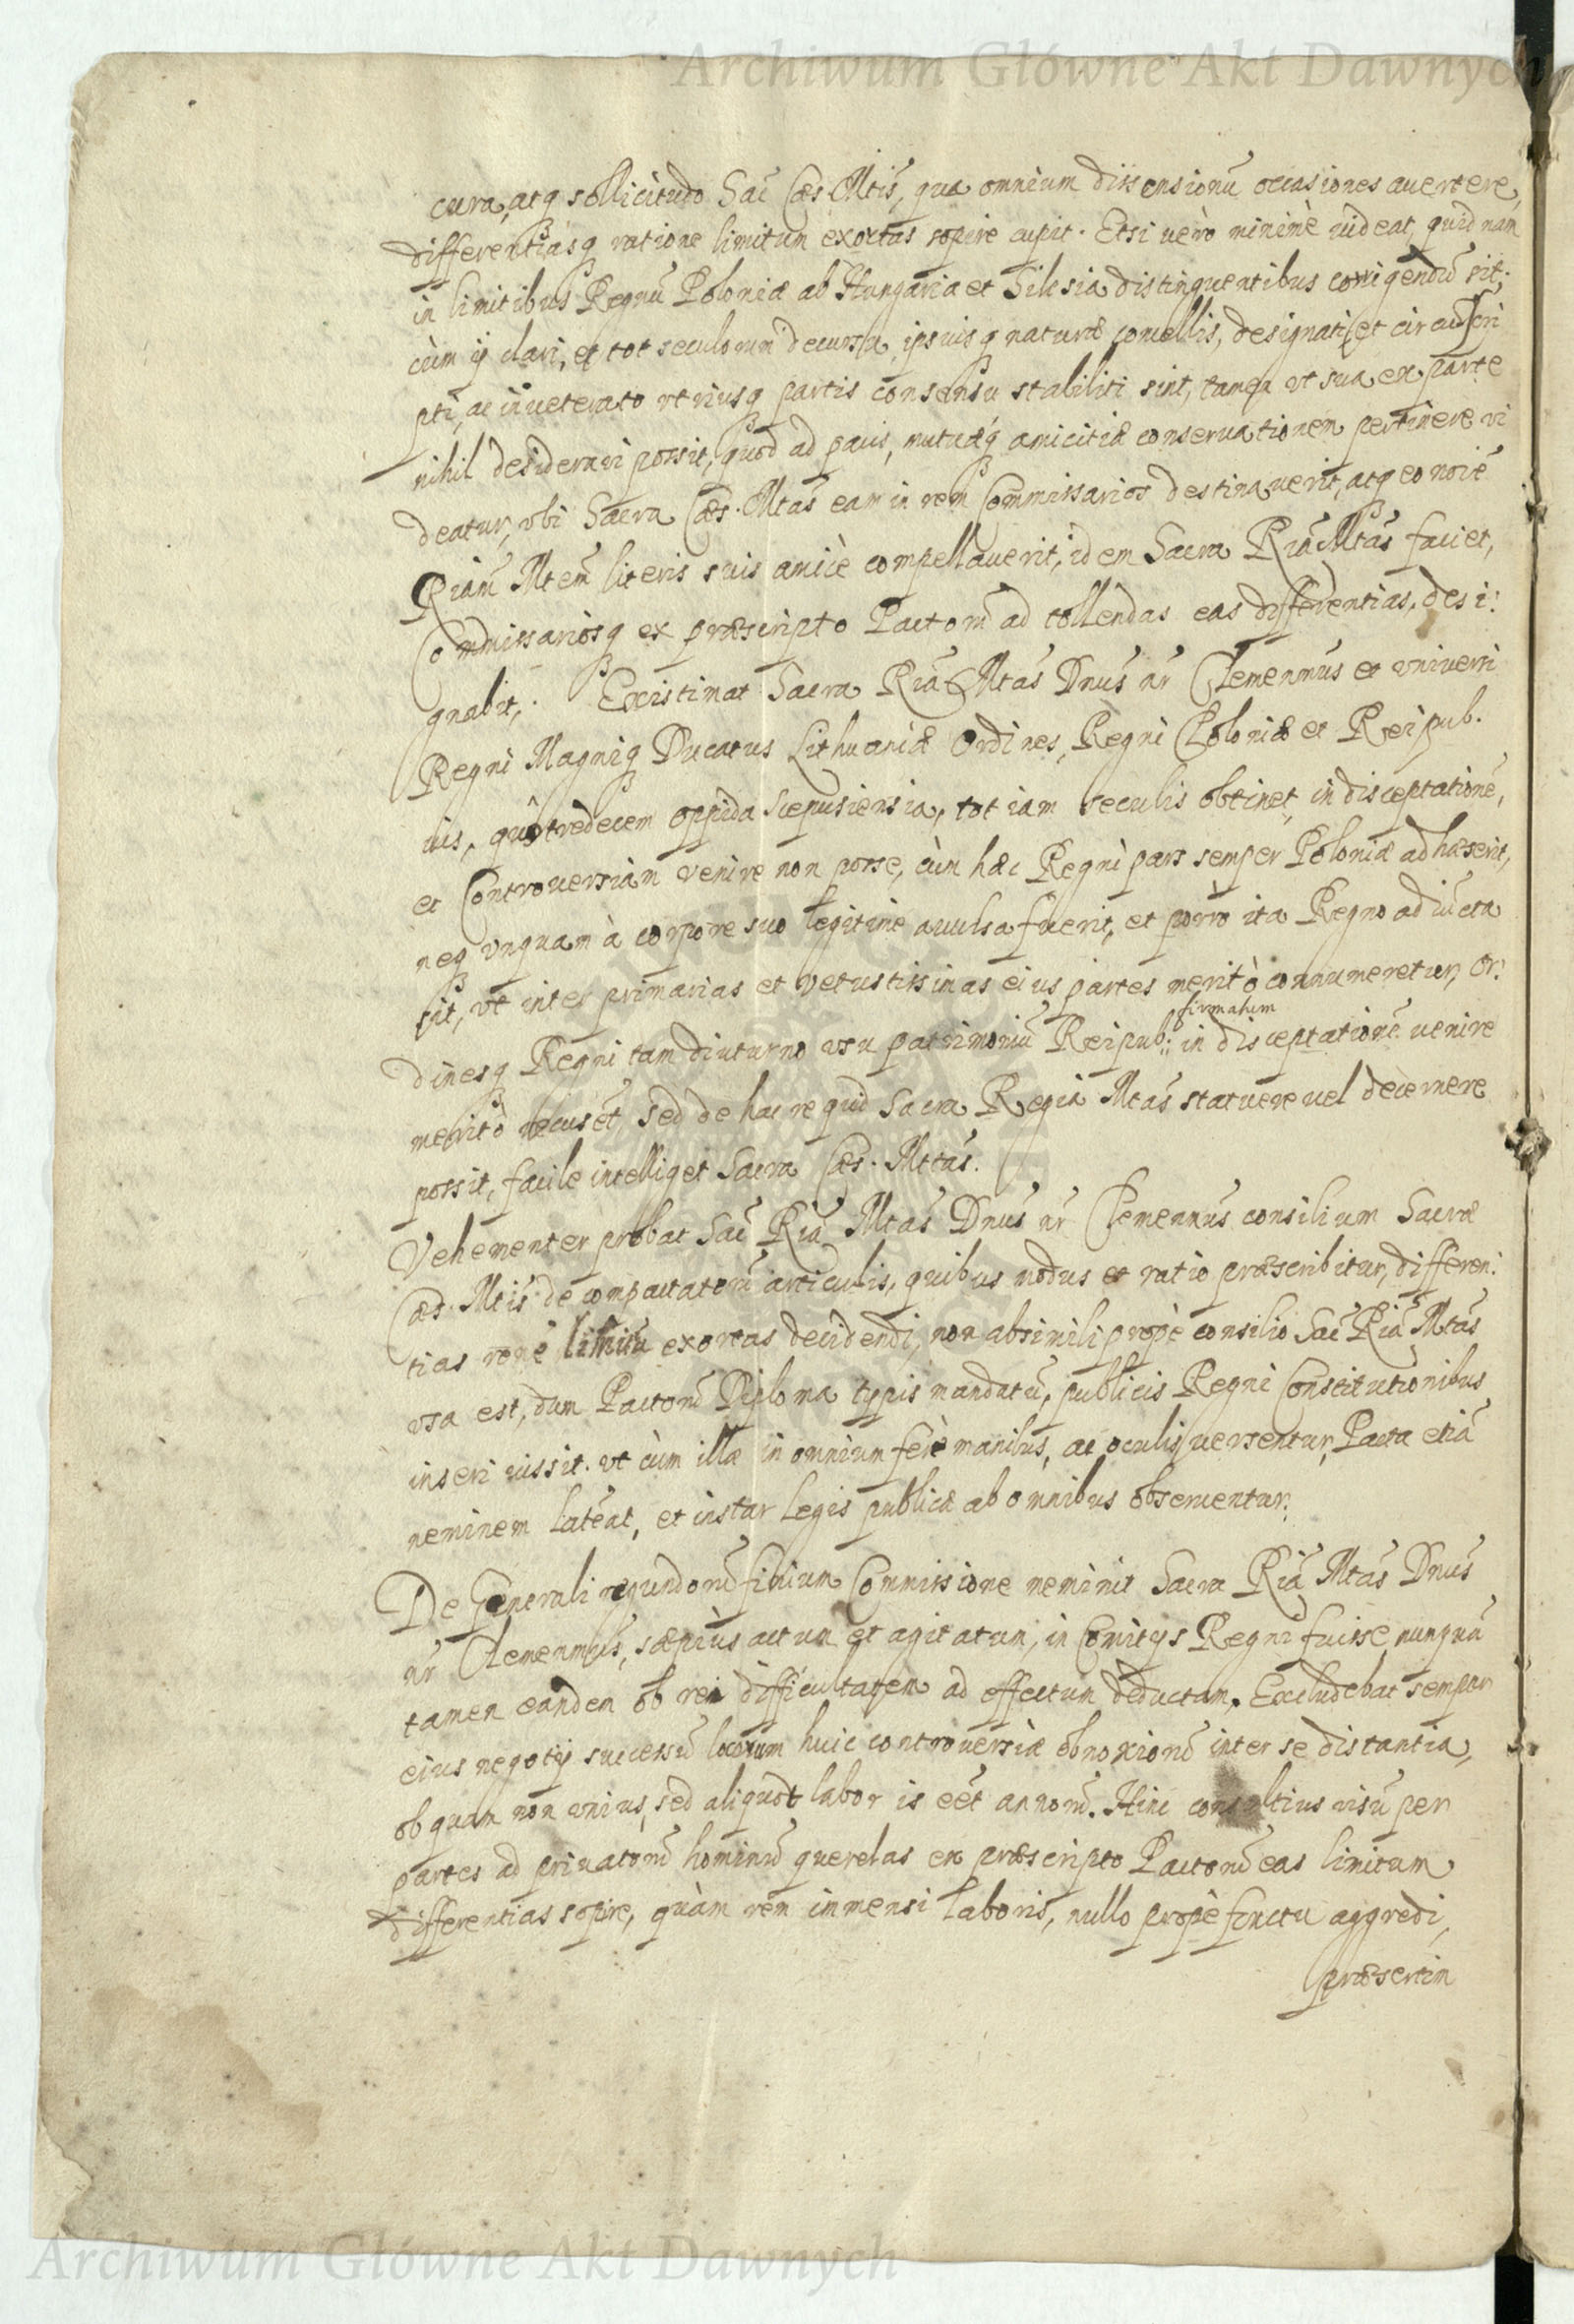 Archiwum Główne Akt Dawnych
cura, atq sollicitudo Sac Cæs. Mtis, qua omnium dissensionũ occasiones auertere,
differentiasq ratione limitum exortas sopire cupit. Etsi uerò minimè uideat, quid nam
in limitibus Regnũ Poloniæ ab Hungaria et Silesia distinguentibus corrigendũ sit;
cùm ij clari, et tot seculorum decursu, ipsiusq naturæ
designati et circũscri
pti, ac inueterato vtriusq partis consensu stabiliti sint, tamen vt sua ex parte
nihil desiderari possit, quod ad pacis, mutuæq amicitiæ conseruationem pertinere vi
deatur, vbi Sacra Cæs. Mtas eam in rem Commissarios destinauerit, atq eo noiẽ
Riam Mtem literis suis amicè compellauerit, idem Sacra Ria Mtas faciet,
Commissariosq ex præscripto Pactorũ ad tollendas eas differentias, desi:
gnabit. Existimat Sacra Ria Mtas Dnus nr Clemenmus et vniuersi
Regni Magniq Ducatus Lithuaniæ Ordines, Regni Poloniæ et Reipub.
ius, quo tredecem oppida Scepusiensia, tot iam seculis obtinet, in disceptationẽ,
et Controuersiam venire non posse, cùm hæc Regni pars semper Poloniæ adhæserit,
neq vnquam à corpore suo legitimè auulsa fuerit, et porrò ita Regno adiũcta
sit, vt inter primarias et vetustissimas eius partes meritò connumeretur, Or:
dinesq Regni tam diuturno vsu patrimoniũ Reipub: firmatum in disceptationẽ uenire
meritò recuset, sed de hac re quid Sacra Regia Mtas statuere uel decernere
possit, facile intelliget Sacra Cæs. Mttas.
Vehementer probat Sac Ria Mtas Dnus nr Clemenmus consilium Sacræ
Cæs. Mtis de compactatorũ articulis, quibus modus et ratio præscribitur, differen:
tias ronẽ limitũ exortas decidendi, non absimili propè consilio Sac Ria Mtas
vsa est, dum Pactorũ Diploma typis mandatũ, publicis Regni Constitutionibus
inseri iussit. vt cùm illæ in omnium ferè manibus, ac oculis uersentur, Pacta etiã
neminem lateat, et instar legis publicæ ab omnibus obseruentur.
De Generali regundorũ finium Commissione meminit Sacra Ria Mtas Dnus
nr Clemenmus, sæpius actum et agitatum, in Comitijs Regni fuisse, nunquã
tamen eandem ob rei difficultatem ad effectum deductam. Excludebat semper
eius negotij successũ locorum huic controuersiæ obnoxiorũ inter se distantia,
ob quam non vnius, sed aliquot labor is eẽt annorũ. Hinc consultius uisũ per
partes ad priuatorũ hominũ querelas ex præscripto Pactorũ eas limitum
differentias sopire, quàm rem immensi laboris, nullo propè fructu aggredi,
præsertim
Archiwum Główne Akt Dawnych